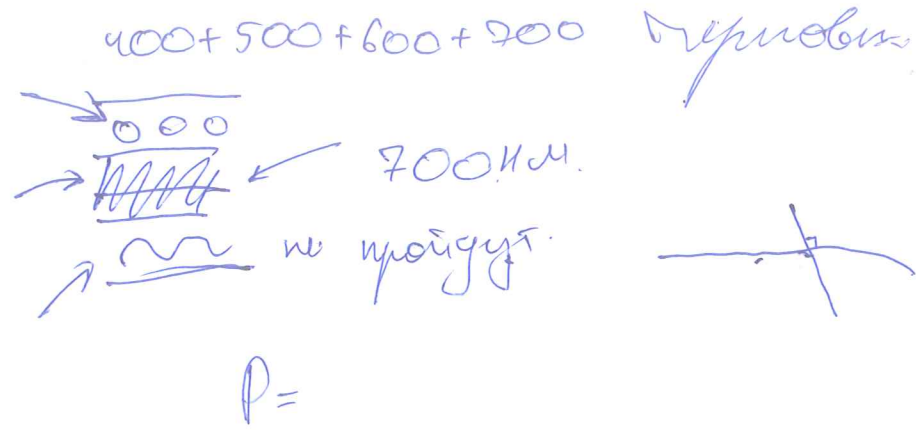 400+500+600+700 Черновик
700 нм.
не пройдут.
P=